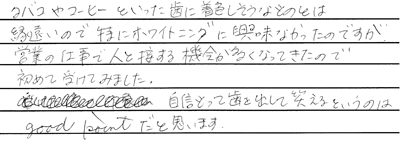 タバコやコーヒーといった歯に着色しそうなものとは
縁遠いので特にホワイトニングに興味なかったのですが、
営業の仕事で人と接する機会が多くなってきたので
初めて受けてみました。
自信もって歯を出して笑えるというのは
good pointだと思います。